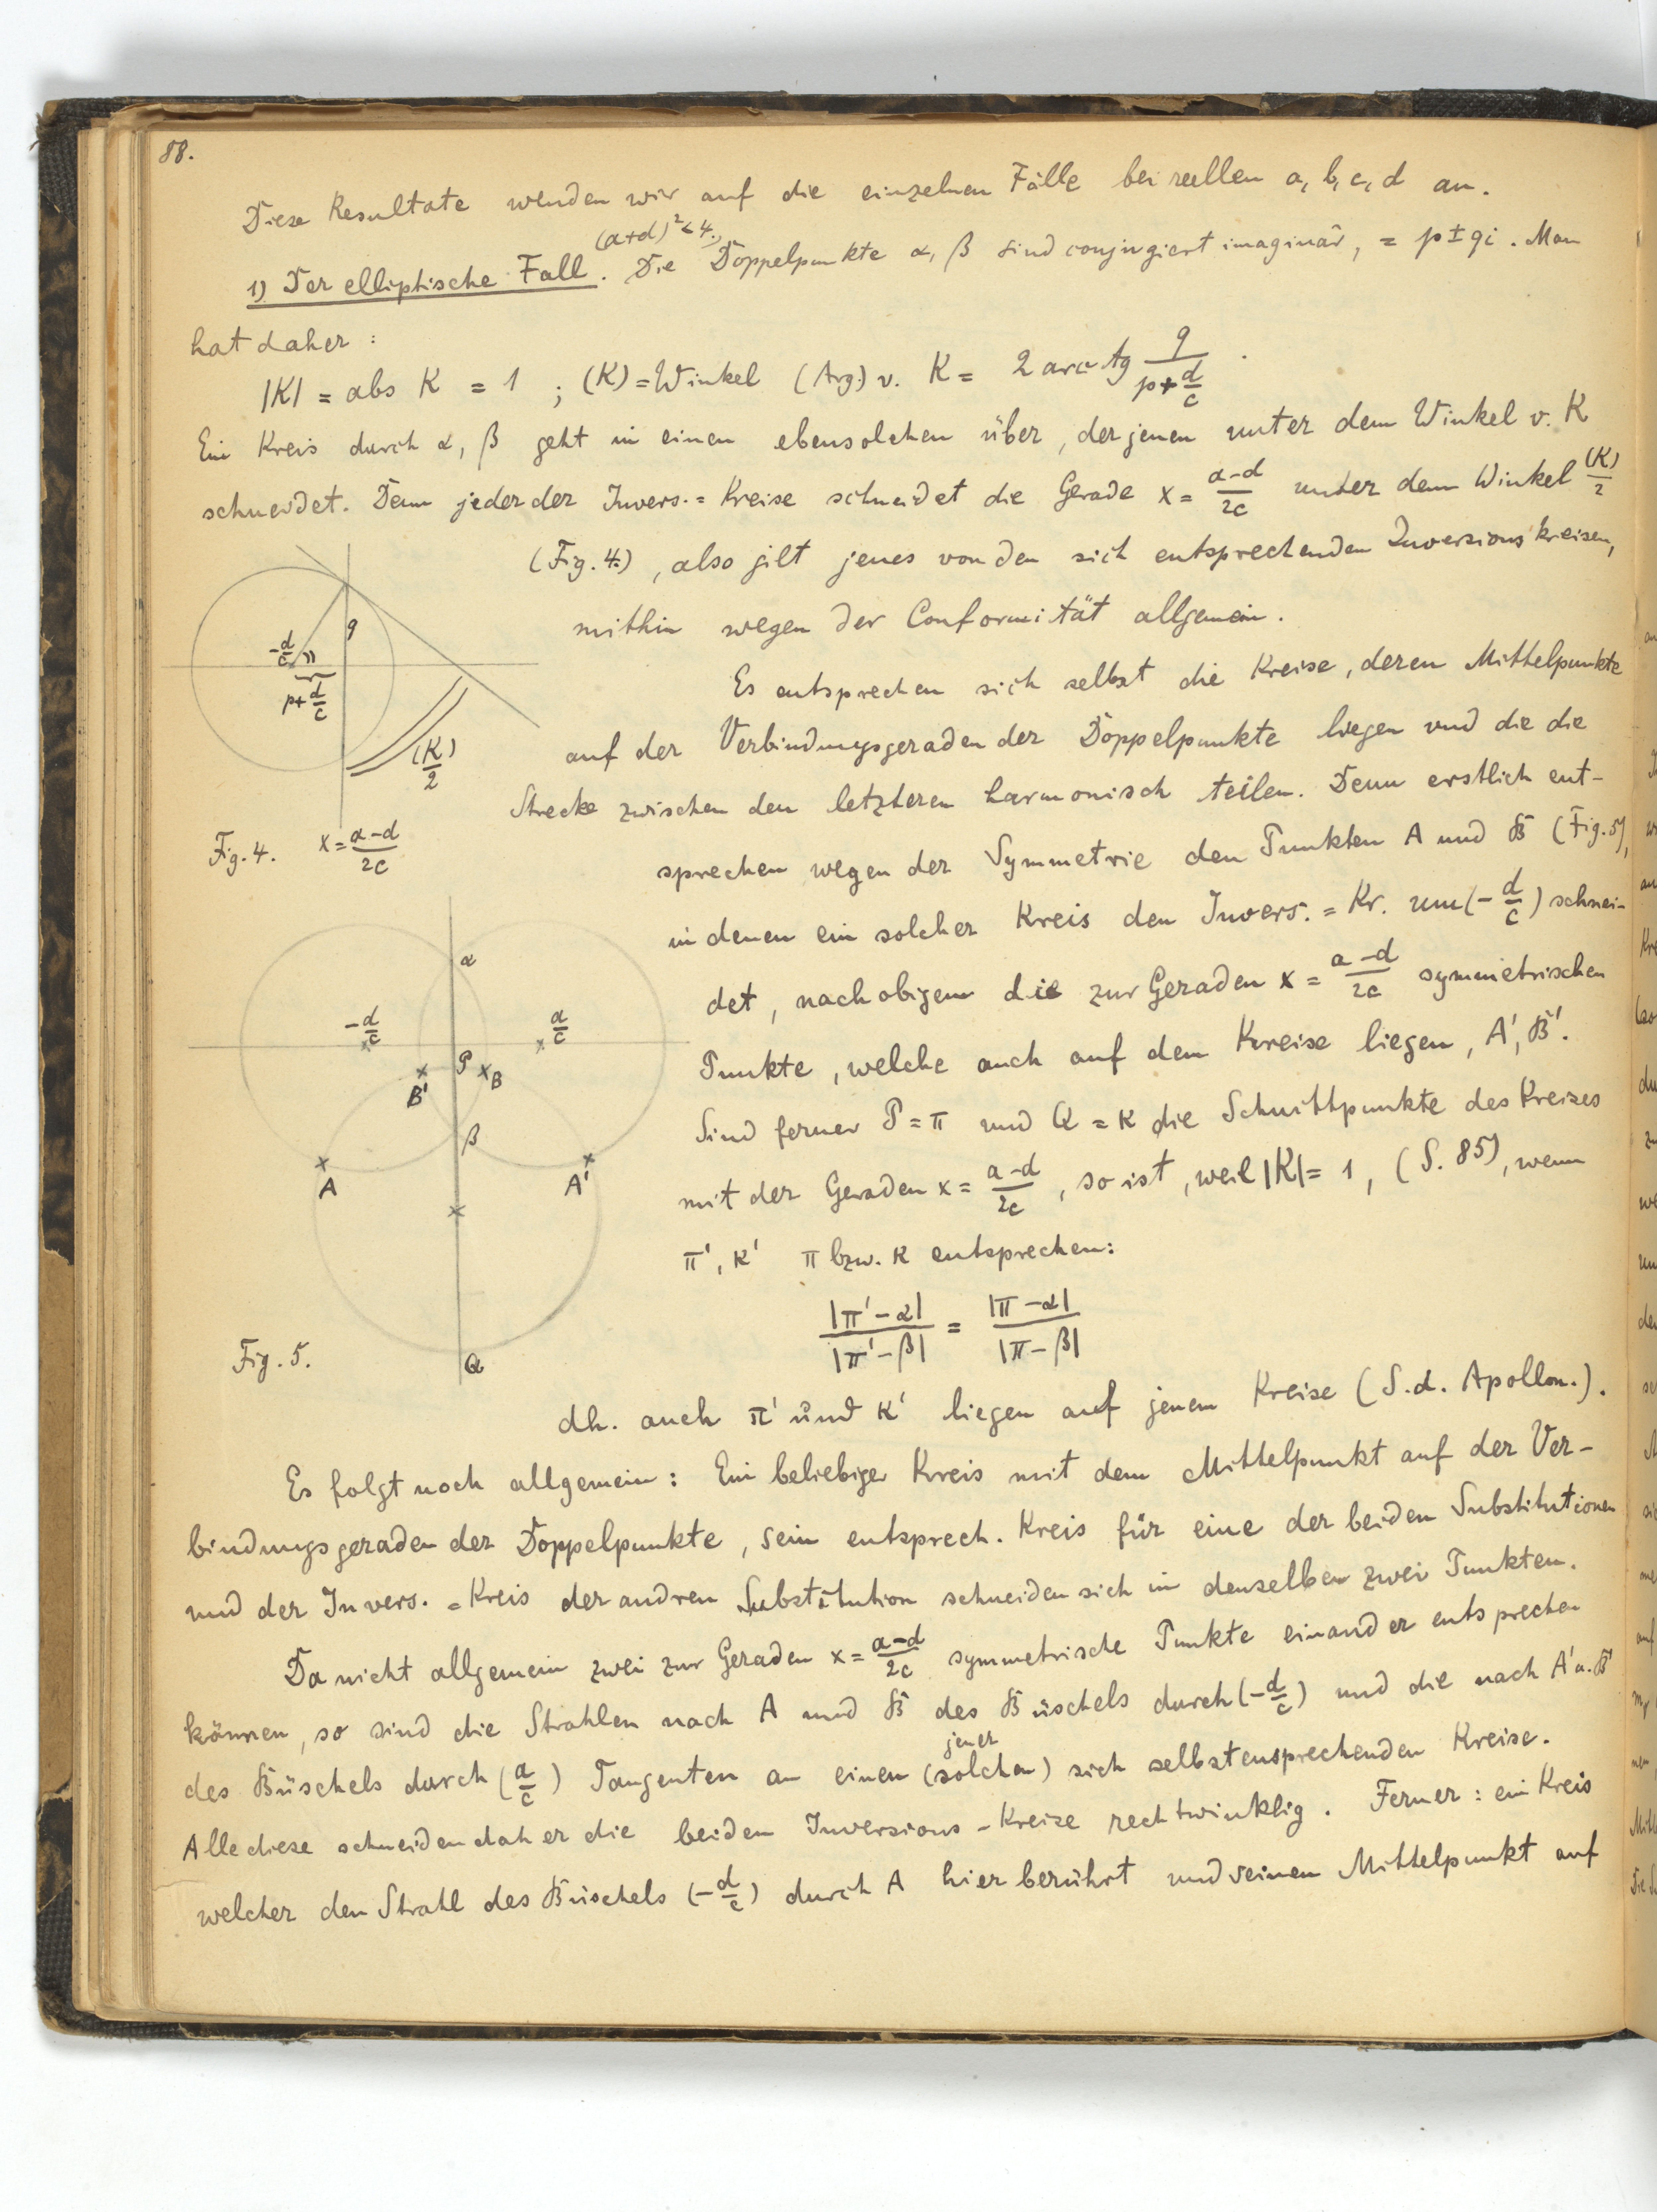 88.
Diese Resultate wenden wir auf die einzelnen Fälle bei reellen a, b, c, d an.
(a+d)² < 4.
1) Der elliptische Fall. Die Doppelpunkte α, β sind conjugiert imaginär, = p ± qi. Man
hat daher:
|K| = abs K = 1 ; (K) = Winkel (Arg.) v. K = 2 arc tg q/(p+d/c).
Ein Kreis durch α, β geht in einen ebensolchen über, der jenen unter dem Winkel v. K
schneidet. Denn jeder der Invers.=Kreise schneidet die Gerade x = (a-d)/2c unter dem Winkel (K)/2
(Fig. 4.), also gilt jenes von den sich entsprechenden Inversionskreisen,
mithin wegen der Conformität allgemein.
q
-d/c
p+d/c
(K)/2
Fig. 4. x = (a-d)/2c
Es entsprechen sich selbst die Kreise, deren Mittelpunkte
auf der Verbindungsgeraden der Doppelpunkte liegen und die die
Strecke zwischen den letzteren harmonisch teilen. Denn erstlich ent-
sprechen wegen der Symmetrie den Punkten A und B (Fig. 5),
in denen ein solcher Kreis den Invers.=Kr. um (-d/c) schnei-
det, nach obigem die zur Geraden x = (a-d)/2c symmetrischen
Punkte, welche auch auf dem Kreise liegen, A', B'.
Sind ferner P = π und Q = κ die Schnittpunkte des Kreises
mit der Geraden x = (a-d)/2c, so ist, weil |K| = 1, (S. 85), wenn
π', κ' π bzw. κ entsprechen:
|π'-α|/|π'-β| = |π-α|/|π-β|
α
-d/c
a/c
P
B'
B
β
A
A'
Q
Fig. 5.
dh. auch π' und κ' liegen auf jenem Kreise (S. d. Apollon.).
Es folgt noch allgemein: Ein beliebiger Kreis mit dem Mittelpunkt auf der Ver-
bindungsgeraden der Doppelpunkte, sein entsprech. Kreis für eine der beiden Substitutionen
und der Invers.=Kreis der andren Substitution schneiden sich in denselben zwei Punkten.
Da nicht allgemein zwei zur Geraden x = (a-d)/2c symmetrische Punkte einander entsprechen
können, so sind die Strahlen nach A und B des Büschels durch (-d/c) und die nach A' u. B'
jener
des Büschels durch (a/c) Tangenten an einen (solchen) sich selbstentsprechenden Kreise.
Alle diese schneiden daher die beiden Inversions-Kreise rechtwinklig. Ferner: ein Kreis
welcher den Strahl des Büschels (-d/c) durch A hier berührt und seinen Mittelpunkt auf